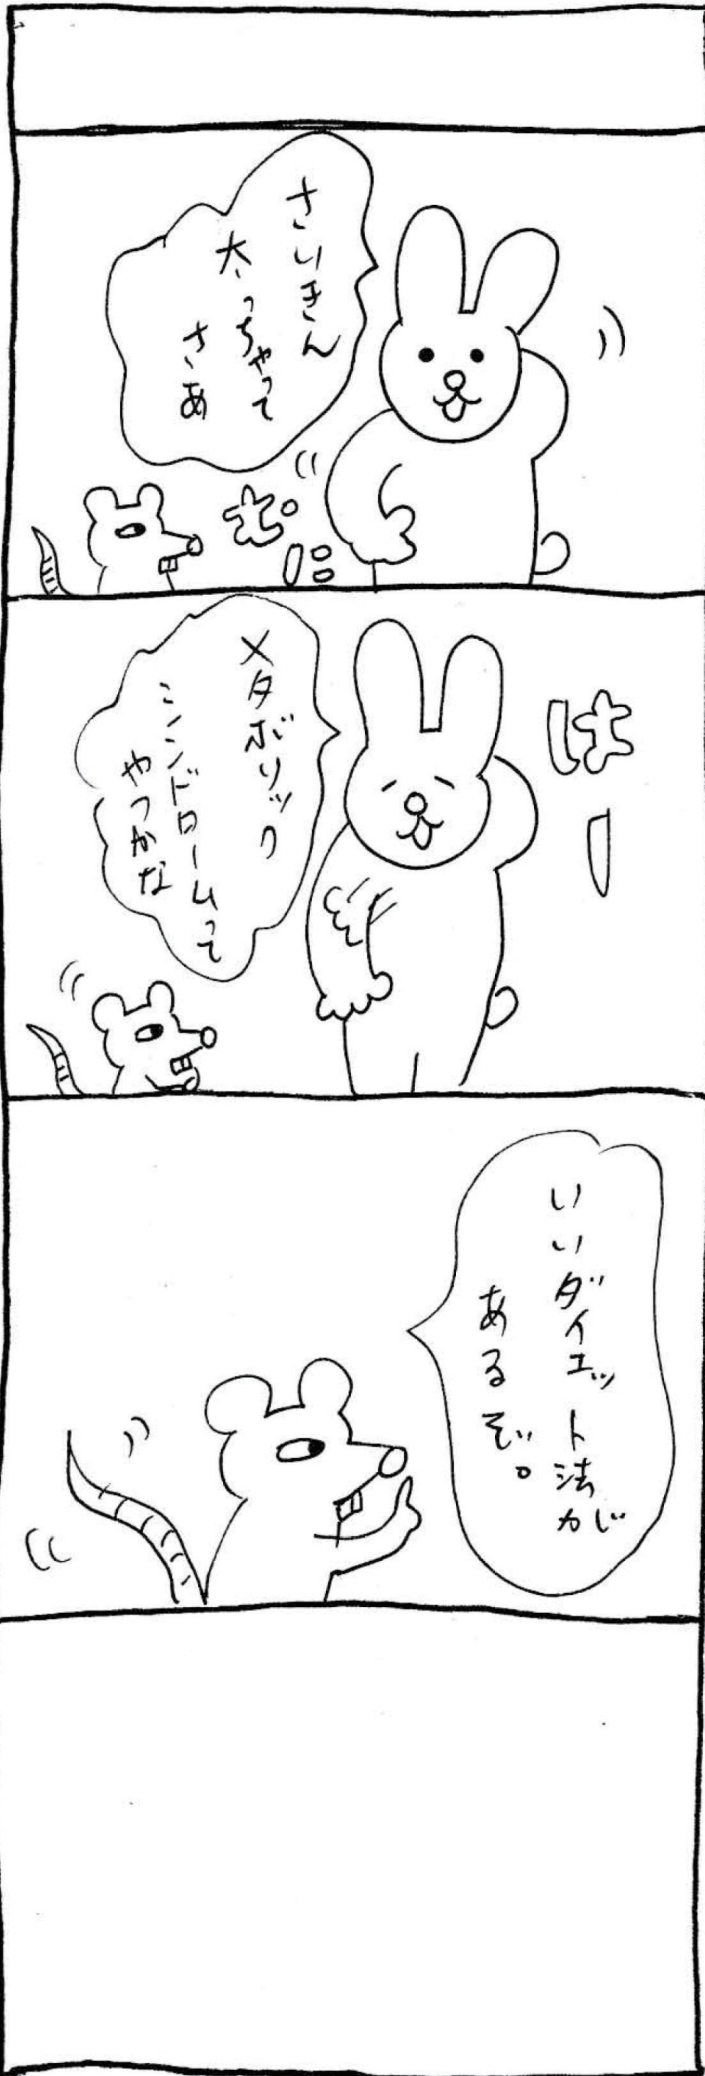 さいきん
太っちゃって
さあ
むに
はー
メタボリック
シンドロームって
やつかな
いいダイエット法が
あるぞ。